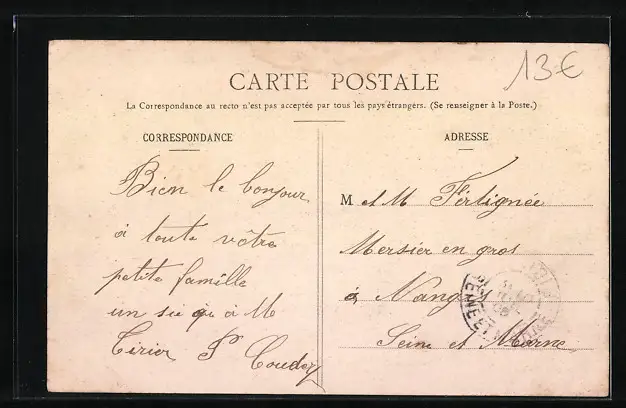 13€
CARTE POSTALE
La Correspondance au recto n'est pas acceptée par tous les pays étrangers. (Se renseigner à la Poste.)
CORRESPONDANCE
ADRESSE
Bien le bonjour
à toute vôtre
petite famille
un à M
M et M Fértignée
Mersier en gros
à Nangis
Seine et Marne